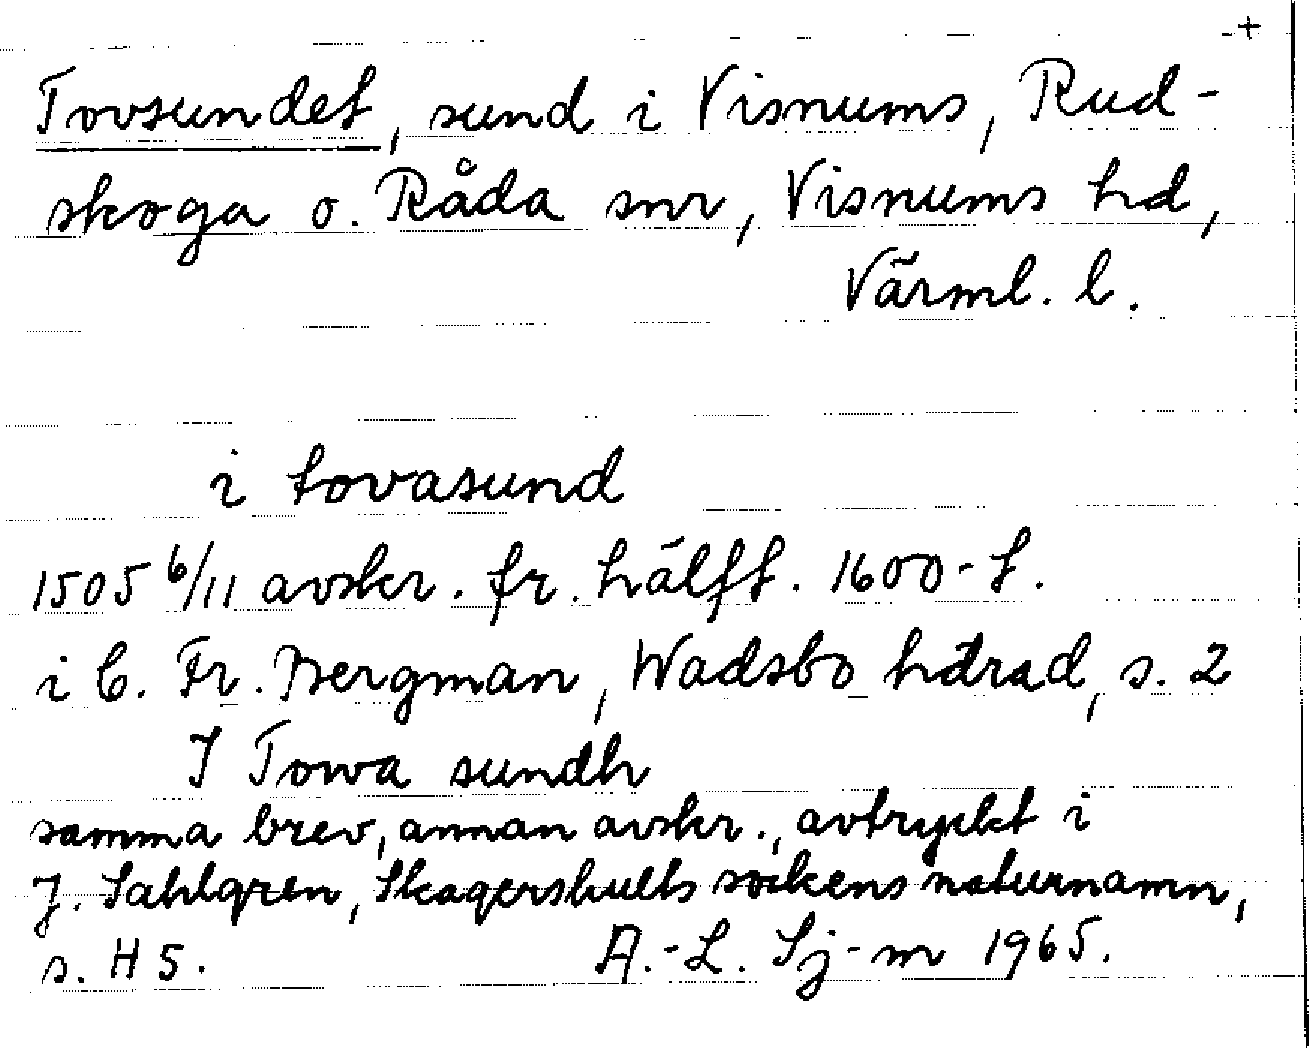 +
Tovsundet, sund i Visnums, Rud-
skoga o. Råda snr, Visnums hd,
Värml. l.
i tovasund
1505 6/11 avskr. fr. hälft. 1600-t.
i C. Fr. Bergman, Wadsbo härad, s. 2
I Towa sundh
samma brev, annan avskr., avtryckt i
J. Sahlgren, Skagershults sockens naturnamn,
s. H 5. A.-L. Sj-m 1965.